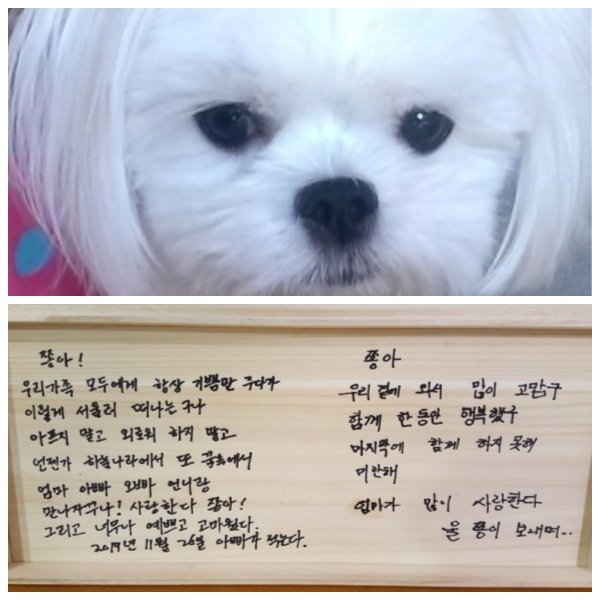 쫑아!
우리가족 모두에게 항상 기쁨만 주다가
이렇게 서둘러 떠나는구나
아프지 말고 외로워 하지 말고
언젠가 하늘나라에서 또 꿈속에서
엄마 아빠 오빠 언니랑
만나자꾸나! 사랑한다 쫑아!
그리고 너무나 예쁘고 고마웠다.
2017년 11월 26일 아빠가 적는다.
쫑아
우리 곁에 와서 많이 고맙구
함께 한동안 행복했구
마지막에 함께 하지 못해
미안해
엄마가 많이 사랑한다
울 쫑이 보내며...